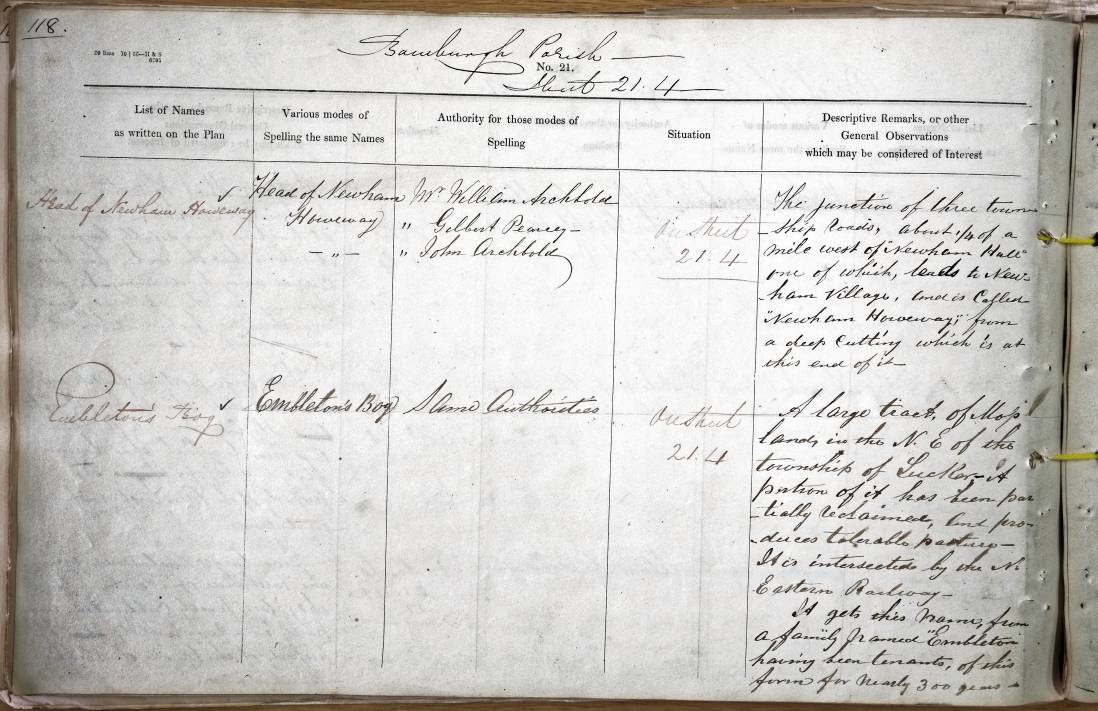 118.
Bamburgh Parish
No. 21.
Sheet 21.4
List of Names
as written on the Plan
Various modes of
Spelling the same Names
Authority for those modes of
Spelling
Situation
Descriptive Remarks, or other
General Observations
which may be considered of Interest
Head of Newham Howeway
Head of Newham
Howeway
— „ —
Mr William Archbold
„ Gilbert Pearcey
„ John Archbold
On Sheet
21.4
The junction of three town-
-ship Roads, about 1/4 of a
mile west of "Newham Hall"
one of which, leads to New-
-ham Village, and is Called
"Newham Howeway," from
a deep Cutting which is at
this end of it
Embleton's Bog
Embleton's Bog
Same Authorities
On Sheet
21.4
A large tract, of Moss
land, in the N. E of the
township of Lucker. A
portion of it has been par
-tially reclaimed, and pro-
-duces tolerable pasture—
It is intersected by the N.
Eastern Railway—
It gets this Name, from
a family named "Embleton
having been tenants, of this
farm for nearly 300 years—